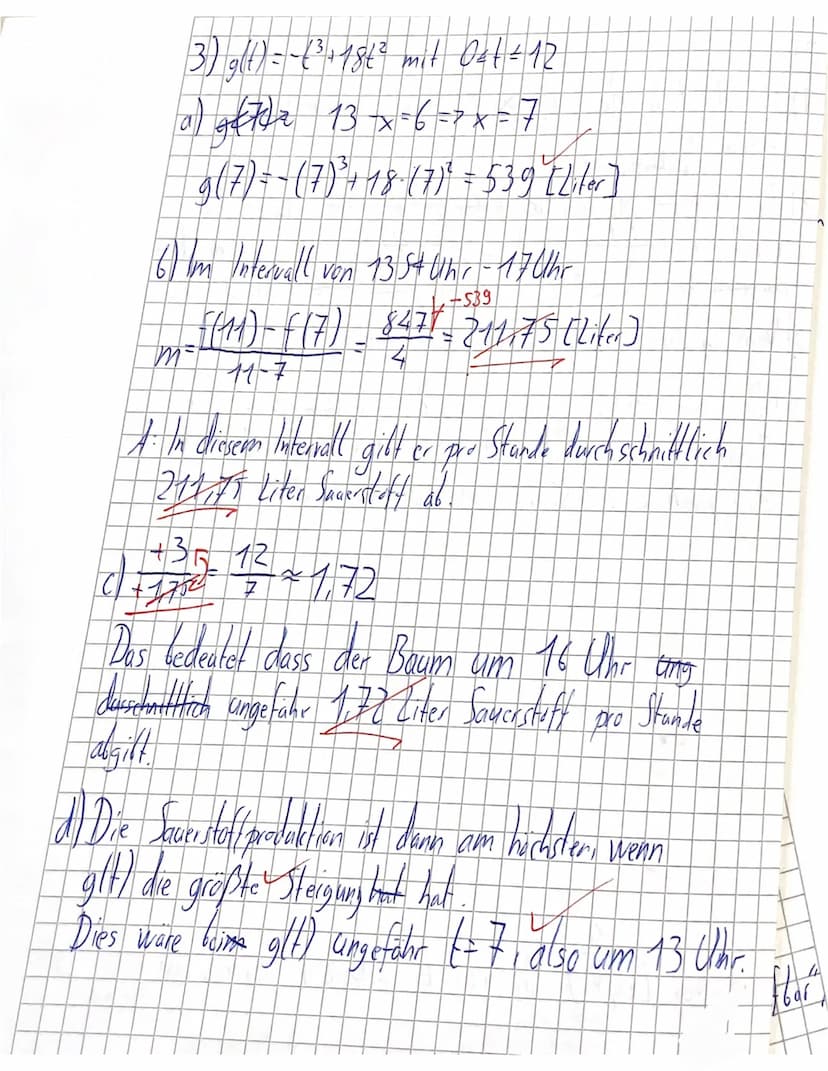 3) g(t) = -t³ + 18t² mit 0≤t≤12
a) g(7)= 13 - x = 6 => x = 7
g(7) = -(7)³ + 18·(7)² = 539 [Liter] ✓
b) Im Intervall von 13 Uhr - 17 Uhr
-539
m = f(11) - f(7) / 11-7 = 847 / 4 = 211,75 [Liter]
A: In diesem Intervall gibt er pro Stunde durchschnittlich
211,75 Liter Sauerstoff ab.
c) +3 / +1,75 = 12 / 7 ≈ 1,72
Das bedeutet dass der Baum um 16 Uhr ung
durschnittlich ungefähr 1,72 Liter Sauerstoff pro Stunde
abgibt.
d) Die Sauerstoffproduktion ist dann am höchsten, wenn
g(t) die größte ✓ Steigung hat hat.
Dies wäre beim g(t) ungefähr t = 7, ✓ also um 13 Uhr.